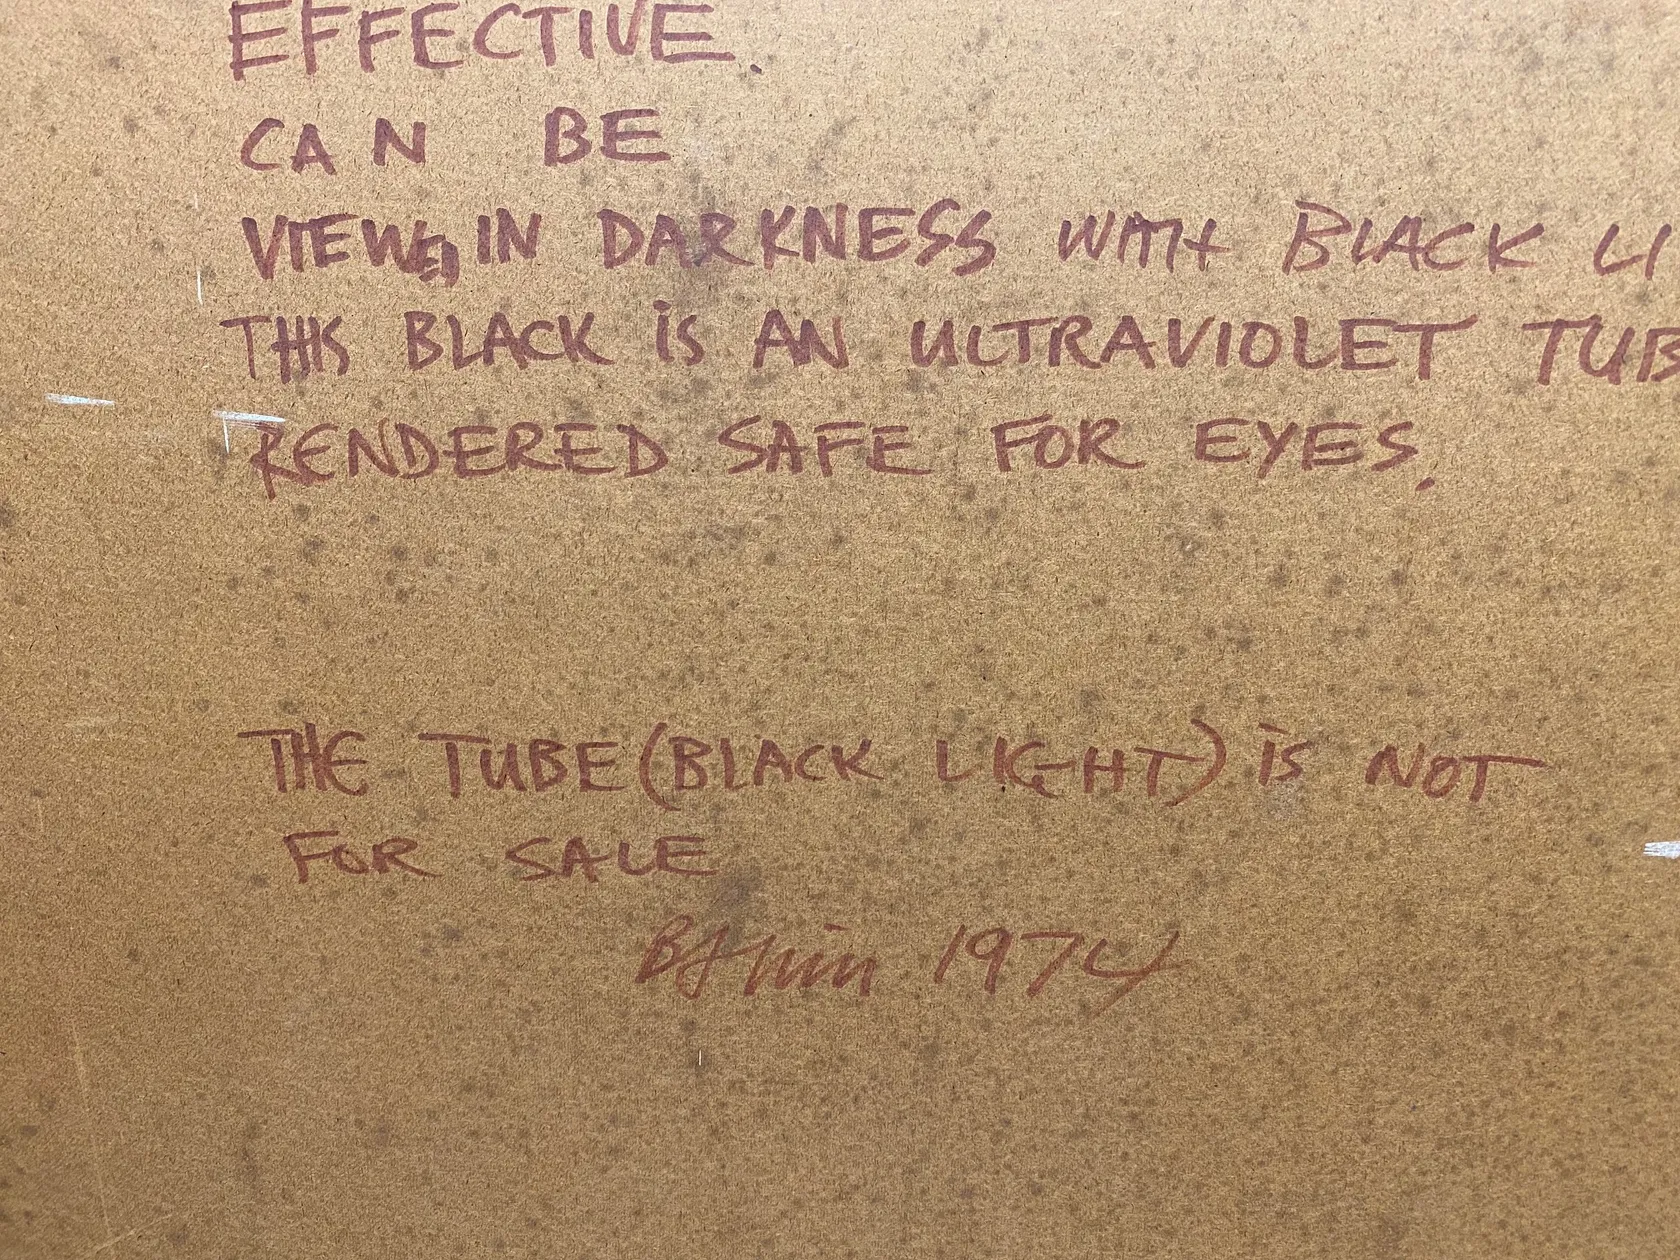 EFFECTIVE.
CAN BE
VIEWED IN DARKNESS WITH BLACK LI
THIS BLACK IS AN ULTRAVIOLET TUB
RENDERED SAFE FOR EYES.
THE TUBE (BLACK LIGHT) IS NOT
FOR SALE
1974